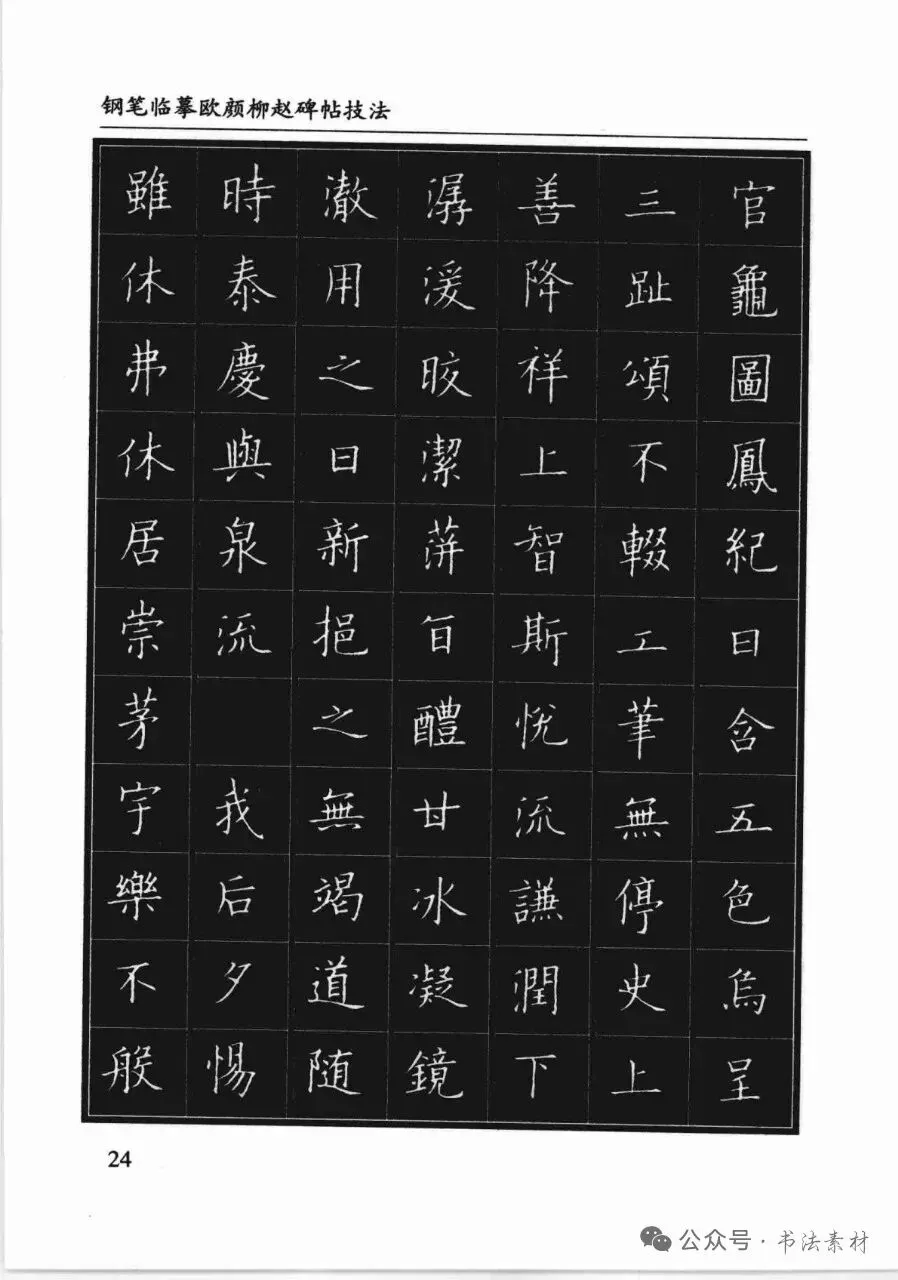 钢笔临摹欧颜柳赵碑帖技法
官龜圖鳳紀日含五色烏呈
三趾頌不輟工筆無停史上
善降祥上智斯悅流謙潤下
潺湲晈潔萍旨醴甘冰凝鏡
澈用之日新挹之無竭道随
時泰慶與泉流 我后夕惕
雖休弗休居崇茅宇樂不般
24
公众号·书法素材